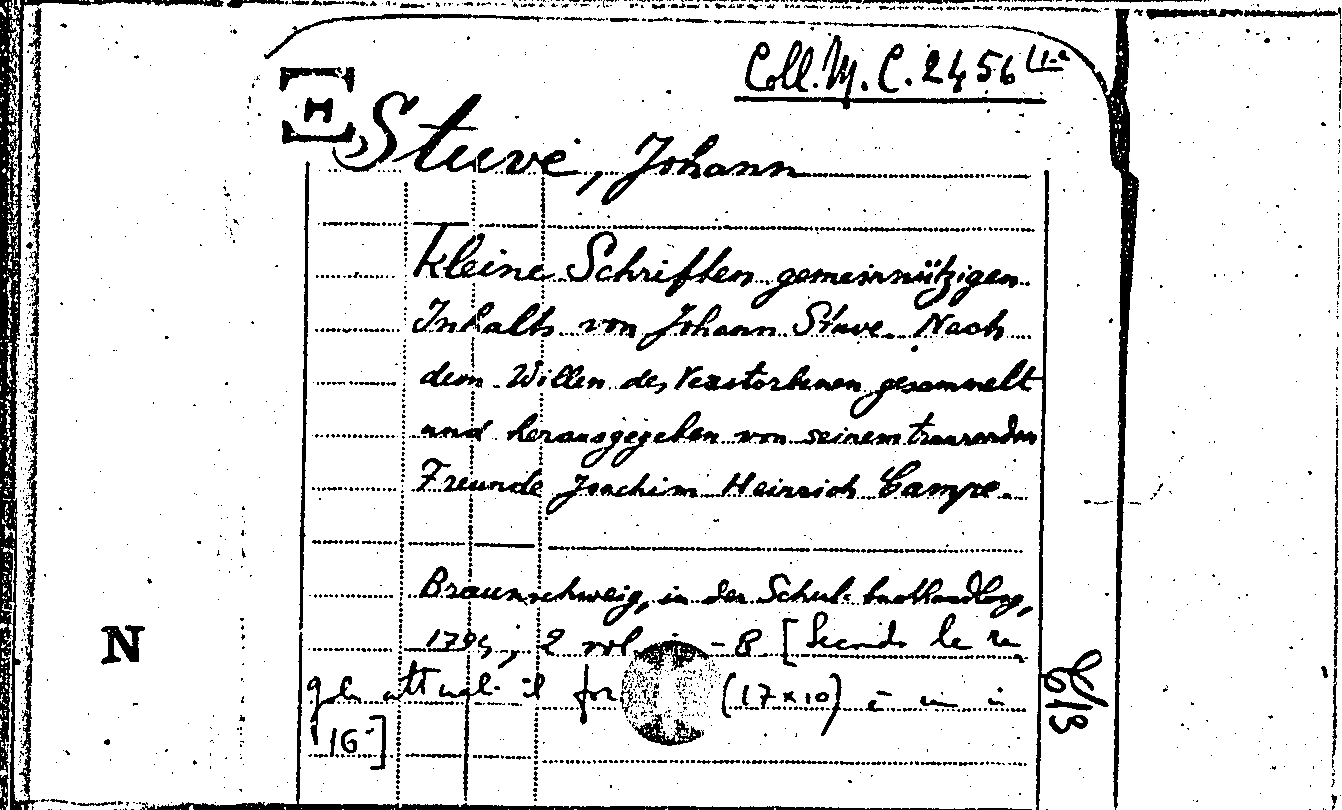 Coll. M. C. 2456
H
Stuve, Johann
Kleine Schriften gemeinnützigen
Inhalts von Johann Stuve. Nach
dem Willen des Verstorbenen gesammelt
und herausgegeben von seinem traurenden
Freunde Joachim Heinrich Campe.
Braunschweig, in der Schul-buchhandlung,
2 vol. in-8 [Secondo le re
gole attuali il for (17x10) è un in
16°]
N